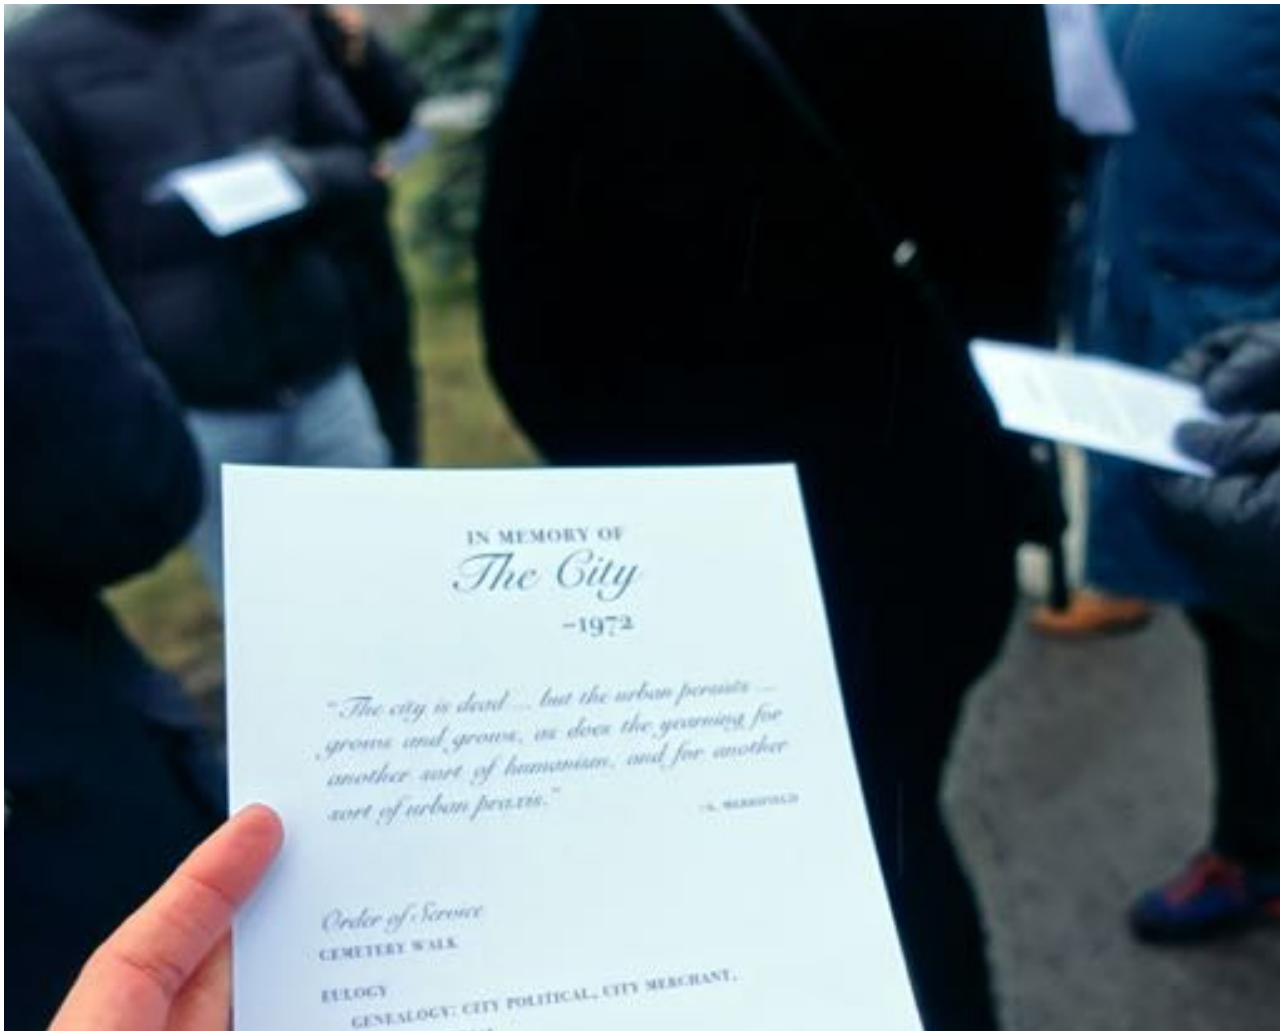 IN MEMORY OF
The City
–1972
"The city is dead ... but the urban persists ...
grows and grows, as does the yearning for
another sort of humanism, and for another
sort of urban praxis."
-A. MERRIFIELD
Order of Service
CEMETERY WALK
EULOGY
GENEALOGY: CITY POLITICAL, CITY MERCHANT,